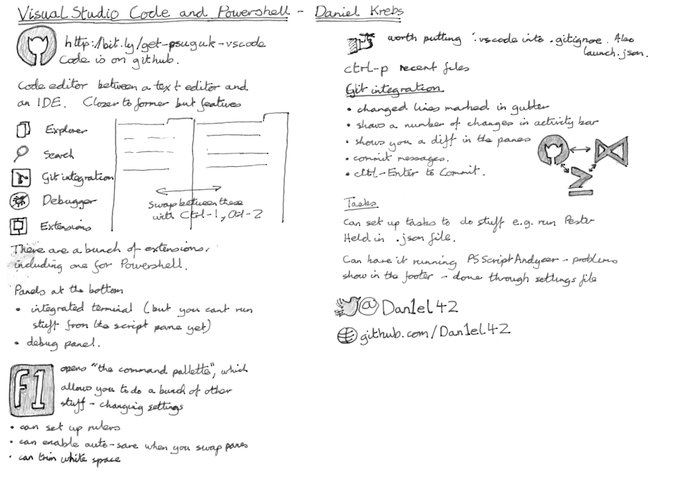 Visual Studio Code and Powershell - Daniel Krebs
http://bit.ly/get-psuguk-vscode
Code is on github.
Code editor between a text editor and
an IDE. Closer to former but features
Explorer
Search
Git integration
Debugger
Extensions
Swap between these
with Ctrl-1, Ctrl-2
There are a bunch of extensions,
including one for Powershell.
Panels at the bottom
• integrated terminal (but you cant run
stuff from the script pane yet)
• debug panel.
F1
opens "the command pallette", which
allows you to do a bunch of other
stuff - changing settings
• can set up rulers
• can enable auto-save when you swap panes
• can trim white space
worth putting .vscode into .gitignore. Also
launch.json.
ctrl-p recent files
Git integration
• changed lines marked in gutter
• shows a number of changes in activity bar
• shows you a diff in the panes
• commit messages.
• ctrl-Enter to Commit.
Tasks
Can set up tasks to do stuff e.g. run Pester
Held in .json file.
Can have it running PSScriptAnalyzer - problems
show in the footer - done through settings file
@Dan1el42
github.com/Dan1el42